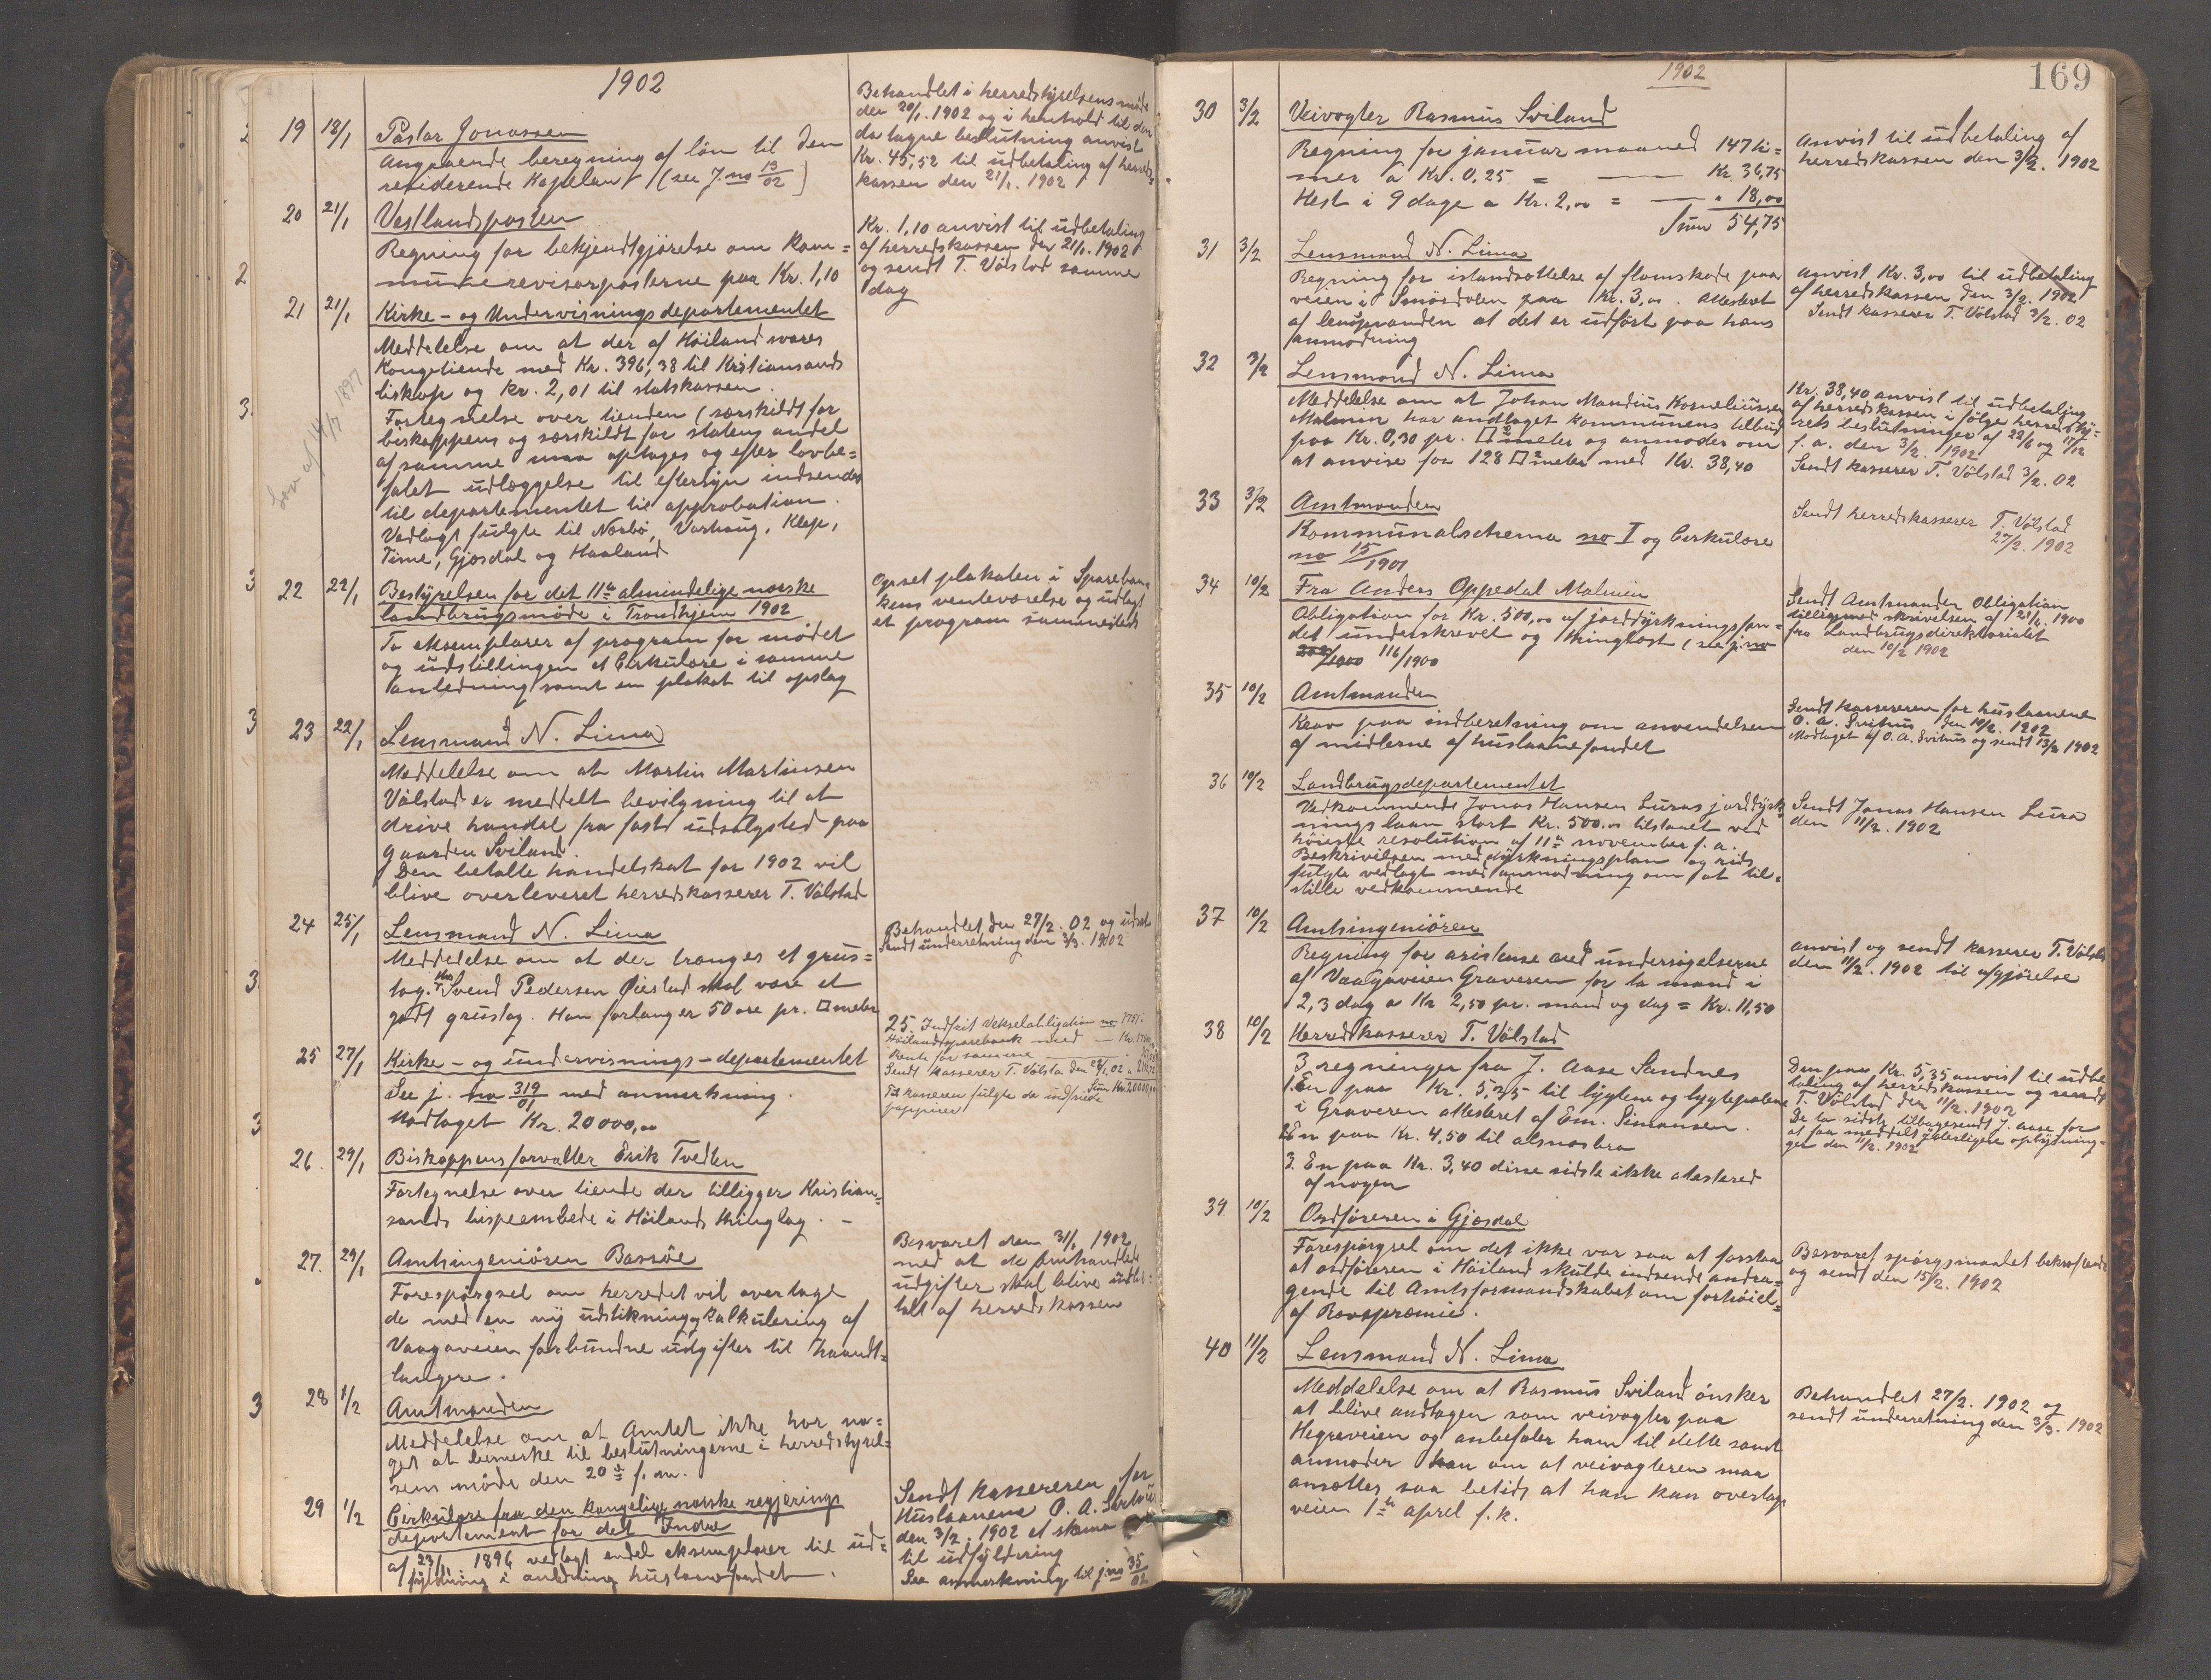 1902
19 18/1 Pastor Jonassen
Angaaende beregning af løn til den
residerende Kapelan (see J. no 13/02)
Behandlet i herredstyrelsens møde
den 20/1. 1902 og i henhold til den
da tagne beslutning anvist
Kr. 45,52 til udbetaling af herreds-
kassen den 21/1. 1902
20 21/1 Vestlandsposten
Regning for bekjendtgjørelse om kom=
munerevisorposterne paa Kr. 1,10
Kr. 1,10 anvist til udbetaling
af herredskassen den 21/1. 1902
og sendt T. Völstad samme
dag
21 21/1 Kirke- og Undervisningsdepartementet
Meddelelse om at der af Höiland svares
Kongetiende med Kr. 396,38 til Kristiansands
biskop og kr. 2,01 til statskassen.
Fortegnelse over tienden (særskildt for
biskoppens og særskildt for statens andel
af samme maa optages og efter lovbe=
falet udlæggelse til eftersyn indsendes
til departementet til approbation.
Vedlagt fulgte til Nærbö, Varhaug, Klep,
Time, Gjesdal og Haaland
Lov af 14/7 1897
22 22/1 Bestyrelsen for det 11te almindelige norske
landbrugsmöde i Trondhjem 1902
To eksemplarer af program for mödet
og udstillingen et Cirkulære i samme
anledning samt en plakat til opslag
Opset plakaten i Spareban-
kens venteværelse og udlagt
et program sammesteds
23 22/1 Lensmand N. Lima
Meddelelse om at Martin Martinsen
Völstad er meddelt bevilgning til at
drive handel fra fast udsalgsted paa
gaarden Sviland.
Den betalte handelskat for 1902 vil
blive overleveret herredskasserer T. Völstad
24 25/1 Lensmand N. Lima
Meddelelse om at der trænges et grus=
tag. Hos Svend Pedersen Øiestad skal være et
godt grustag. Han forlanger 50 øre pr. □meter
Behandlet den 27/2. 02 og udsat
Sendt underretning den 3/3. 1902
25 27/1 Kirke- og undervisnings-departementet
See j. no 319/01 med anmerkning.
Modtaget Kr. 20000,00
25. Indfrit vekselobligation no 1751.
Höilands sparebank med
Rente for samme
Sendt kasserer T. Völstad den
Sum Kr. 20000,00
Til kassereren fulgte de indfriede
pappirer
26. 29/1 Biskoppens forvalter Erik Tvedten
Fortegnelse over tiende der tilligger Kristian=
sands bispeembede i Höilands thinglag. -
27. 29/1 Amtsingeniören Bassöe
Forespörgsel om herredet vil overtage
de med en ny udstikning og kalkulering af
Vaagaveien forbundne udgifter til haandt=
langere.
Besvaret den 31/1 1902
med at de omhandlede
udgifter skal blive udbe=
talt af herredskassen
28 1/2 Amtmanden
Meddelelse om at Amtet ikke har no=
get at bemerke til beslutningerne i herredstyrel=
sens möde den 20de f. m.
29 1/2 Cirkulære fra den kongelige norske regjerings
departement for det Indre
af 23/11 1896 vedlagt endel eksemplarer til ud=
fyldning i anledning huslaanefondet.
Sendt kassereren for
Huslaanene O. A. Svihus
den 3/2. 1902 et skema
til udfyldning
See anmerkning til j.no 35/02
169
1902
30 3/2 Veivogter Rasmus Sviland
Regning for januar maaned 147 ti=
mer a Kr. 0,25 = Kr. 36,75
Hest i 9 dage a Kr. 2,00 = " 18,00
Sum 54,75
Anvist til udbetaling af
herredskassen den 3/2. 1902
31 3/2 Lensmand N. Lima
Regning for istandsættelse af flomskade paa
veien i Smörsdalen paa Kr. 3,00. Attesteret
af lensmanden at det er udfört paa hans
anmodning
Anvist Kr. 3,00 til udbetaling
af herredskassen den 3/2. 1902
Sendt kasserer T. Völstad 3/2. 02
32 3/2 Lensmand N. Lima
Meddelelse om at Johan Mandius Korneliussen
Malmin har andtaget kommunens tilbud
paa Kr. 0,30 pr. □ meter og anmoder om
at anvise for 128 □ meter med Kr. 38,40
Kr. 38,40 anvist til udbetaling
af herredskassen i fölge herredsty=
rets beslutninger af 22/6 og 17/12
f. a. den 3/2. 1902
Sendt kasserer T. Völstad 3/2. 02
33 3/2 Amtmanden
Kommunalschema no I og Cirkulære
no 15/1901
Sendt herredskasserer T. Völstad
27/2. 1902
34 10/2 Fra Anders Oppedal Malmin
Obligation for Kr. 500,00 af jorddyrkningsfon=
det underskrevet og thinglæst (see j. no
116/1900
Sendt Amtmanden Obligation
tilligemed skrivelsen af 21/4. 1900
fra Landbrugsdirektoriatet
den 10/2 1902
35 10/2 Amtmanden
Krav paa indberetning om anvendelsen
af midlerne af huslaanefondet
Sendt kassereren for huslaanene
O. A. Svihus den 10/2. 1902
Modtaget af O. A. Svihus og sendt 13/2 1902
36 10/2 Landbrugsdepartementet
Vedkommende Jonas Hansen Luras jorddyrk=
ningslaan stort Kr. 500.00 tilstaaet ved
höieste resolution af 11te november f. a.
Beskrivelsen med dyrkningsplan og rids
fulgte vedlagt med anmodning om at til=
stille vedkommende
Sendt Jonas Hansen Lura
den 11/2. 1902
37 10/2 Amtsingeniören
Regning for asistense ved undersögelserne
af Vaagaveien Graveren for to mand i
2,3 dag a Kr 2,50 pr. mand og dag = Kr. 11,50
anvist og sendt kasserer T. Völstad
den 11/2. 1902 til afgjörelse
38 10/2 Herredskasserer T. Völstad
3 regninger fra J. Aase Sandnes
1. En paa Kr. 5,35 til lygtene og lygtepælene
i Graveren attesteret af Em. Simonsen.
2. En paa Kr. 4,50 til alsnesbro
3. En paa Kr. 3,40 disse sidste ikke attestered
af nogen
Den paa Kr. 5,35 anvist til udbe
taling af herredskassen og sendt
T. Völstad den 11/2. 1902
De to sidste tilbagesendt J. Aase for
at faa meddelt yderligere oplysning=
ger den 11/2. 1902
39 10/2 Ordföreren i Gjesdal
Forespörgsel om det ikke var saa at forstaa
at ordföreren i Höiland skulde indsende andra=
gende til Amtsformandskabet om forhöiel=
af Rovpræmie.
Besvaret spörgsmaalet bekræftende
og sendt den 15/2. 1902
40 11/2 Lensmand N. Lima
Meddelelse om at Rasmus Sviland önsker
at blive andtagen som veivogter paa
Hegreveien og anbefaler ham til dette samt
anmoder han om at veivogteren maa
ansættes saa betids at han kan overtage
veien 1te april f. k.
Behandlet 27/2. 1902 og
sendt underretning den 3/3. 1902